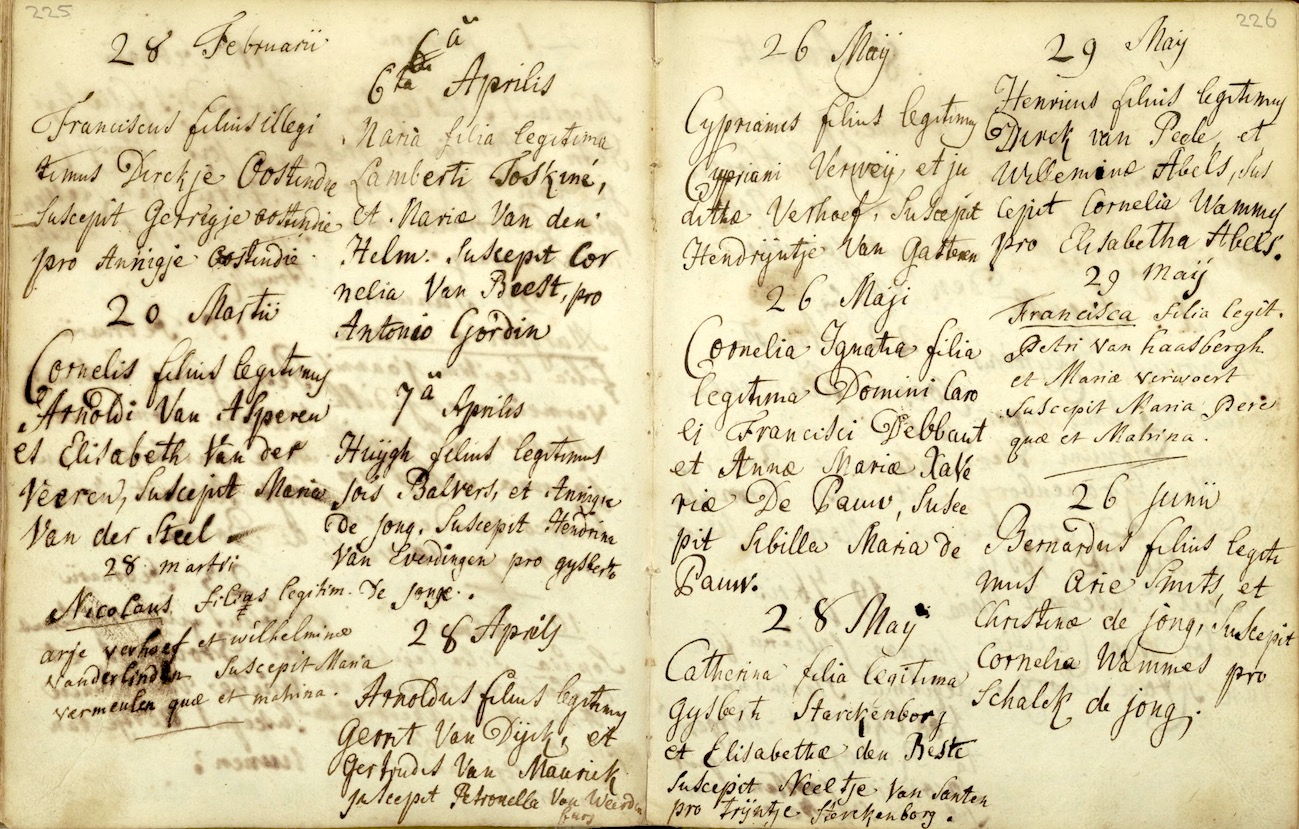 225
28 Februarii
Franciscus filius illegi
timus Dirckje Oostindie
Suscepit Gerrigje oostindie
pro Annigje Oostindie.
20 Martii
Cornelis filius legitimus
Arnoldi Van Asperen
et Elisabeth Van der
Veeren, Suscepit Maria
Van der Steel.
28 martii
Nicolaus filius legitim.
arje verhoef et wilhelminæ
vanderlinden Suscepit Maria
vermeulen quæ et matrina.
6ta Aprilis
Maria filia legitima
Lamberti Foskiné,
et Mariæ Van den
Helm. Suscepit Cor
nelia Van Beest, pro
Antonio Gordin
7a Aprilis
Huijgh filius legitimus
Jois Balvers, et Annigje
De Jong. Suscepit Hendrina
Van Everdingen pro gysberto
De Jonge.
28 Aprilis
Arnoldus filius legitimus
Gerrit Van Dijck, et
Gertrudis Van Maurick
suscepit Petronella Van
226
26 Maij
Cyprianus filius legitimus
Cypriani Verweij, et ju
dithæ Verhoef, Suscepit
Hendrijntje Van
26 Maji
Cornelia Ignatia filia
legitima Domini Caro
li Francisci Debbaut
et Annæ Mariæ Xave
riæ De Pauw, Susce
pit Sibilla Maria de
Pauw.
28 Maij
Catherina filia legitima
Gysberti Starckenborg
et Elisabethæ den Beste
Suscepit Neeltje Van Santen
pro Trijntje Sterckenborg.
29 Maij
Henricus filius legitimus
Dirck van Peele, et
Willeminæ Abels, Sus
cepit Cornelia Wammes
pro Elisabetha Abels.
29 maij
Francisca filia legit.
Petri van haasbergh
et Mariæ verwoert
Suscepit Maria
quæ et Matrina.
26 Junii
Bernardus filius legiti
mus Arie Smits, et
Christinæ de jong, Suscepit
Cornelia Wammes pro
Schalck de jong.